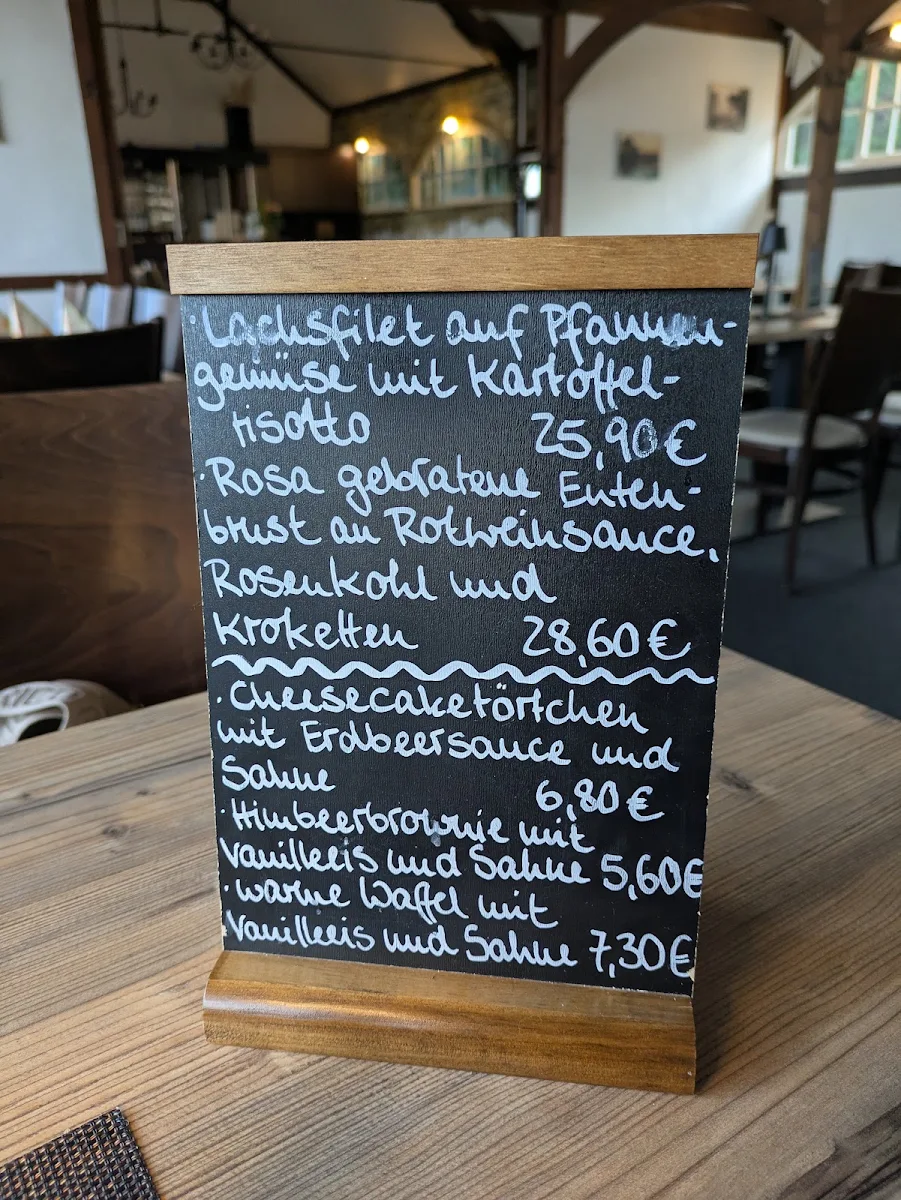 · Lachsfilet auf Pfannen-
gemüse mit Kartoffel-
risotto 25,90 €
· Rosa gebratene Enten-
brust an Rotweinsauce,
Rosenkohl und
Kroketten 28,60 €
· Cheesecaketörtchen
mit Erdbeersauce und
Sahne 6,80 €
· Himbeerbrownie mit
Vanilleeis und Sahne 5,60 €
· warme Waffel mit
Vanilleeis und Sahne 7,30 €